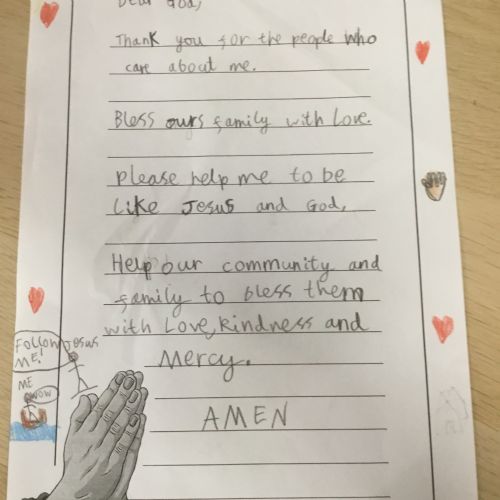 Dear God,
Thank you for the people who
care about me.
Bless ours family with Love.
please help me to be
Like Jesus and God,
Help our community and
family to bless them
with Love, kindness and
Mercy.
AMEN
Follow ME!
Jesus
ME
WOW